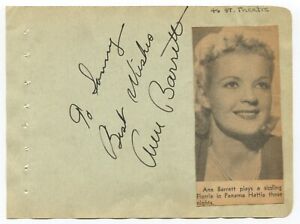 46 St. Theatre
To Sonny
Best Wishes
Ann Barrett
Ann Barrett plays a sizzling
Florrie in Panama Hattie these
nights.